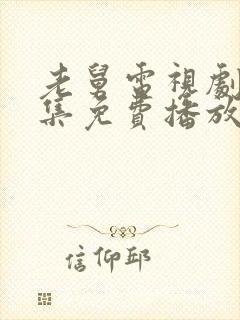 老舅電視劇
集免費播放
信仰邱